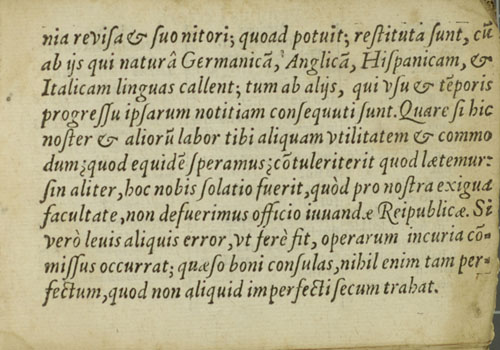 nia revisa & suo nitori; quoad potuit; restituta sunt, cũ
ab ijs qui naturâ Germanicã, Anglicã, Hispanicam, &
Italicam linguas callent; tum ab alijs, qui vsu & tẽporis
progressu ipsarum notitiam consequuti sunt. Quare si hic
noster & aliorũ labor tibi aliquam vtilitatem & commo
dum; quod equidẽ speramus; cõtuleriterit quod lætemur:
sin aliter, hoc nobis solatio fuerit, quòd pro nostra exigua
facultate, non defuerimus officio iuuandæ Reipublicæ. Si
verò leuis aliquis error, vt ferè fit, operarum incuria cõ-
missus occurrat; quæso boni consulas, nihil enim tam per-
fectum, quod non aliquid imperfecti secum trahat.